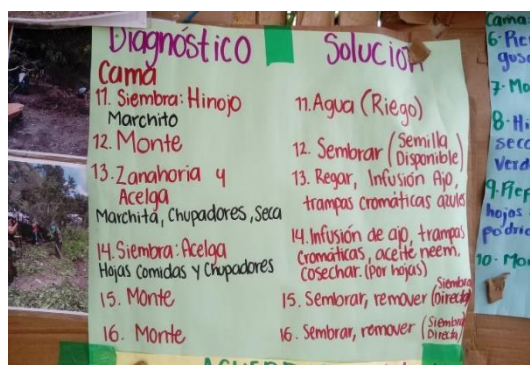 Diagnóstico
Cama
11. Siembra: Hinojo
Marchito
12. Monte
13. Zanahoria y
Acelga
Marchita, Chupadores, Seca
14. Siembra: Acelga
Hojas Comidas y Chupadores
15. Monte
16. Monte
Solución
11. Agua (Riego)
12. Sembrar (Semilla
Disponible)
13. Regar, Infusión Ajo,
trampas cromáticas azules
14. Infusión de ajo, trampas
cromáticas, aceite neem.
cosechar. (por hojas)
15. Sembrar, remover (Siembra
Directa)
16. Sembrar, remover (Siembra
Directa)
Cama